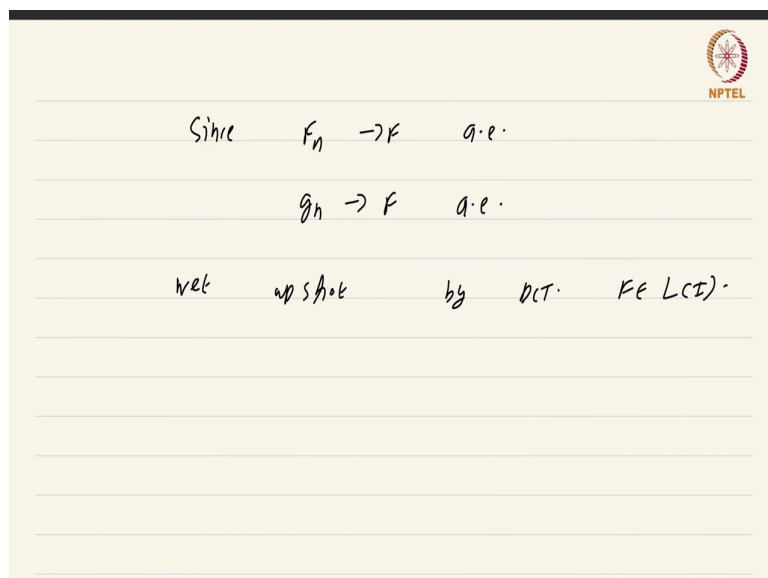 NPTEL
Since Fn → F a.e.
gn → F a.e.
net upshot by DCT. F ∈ L(I).